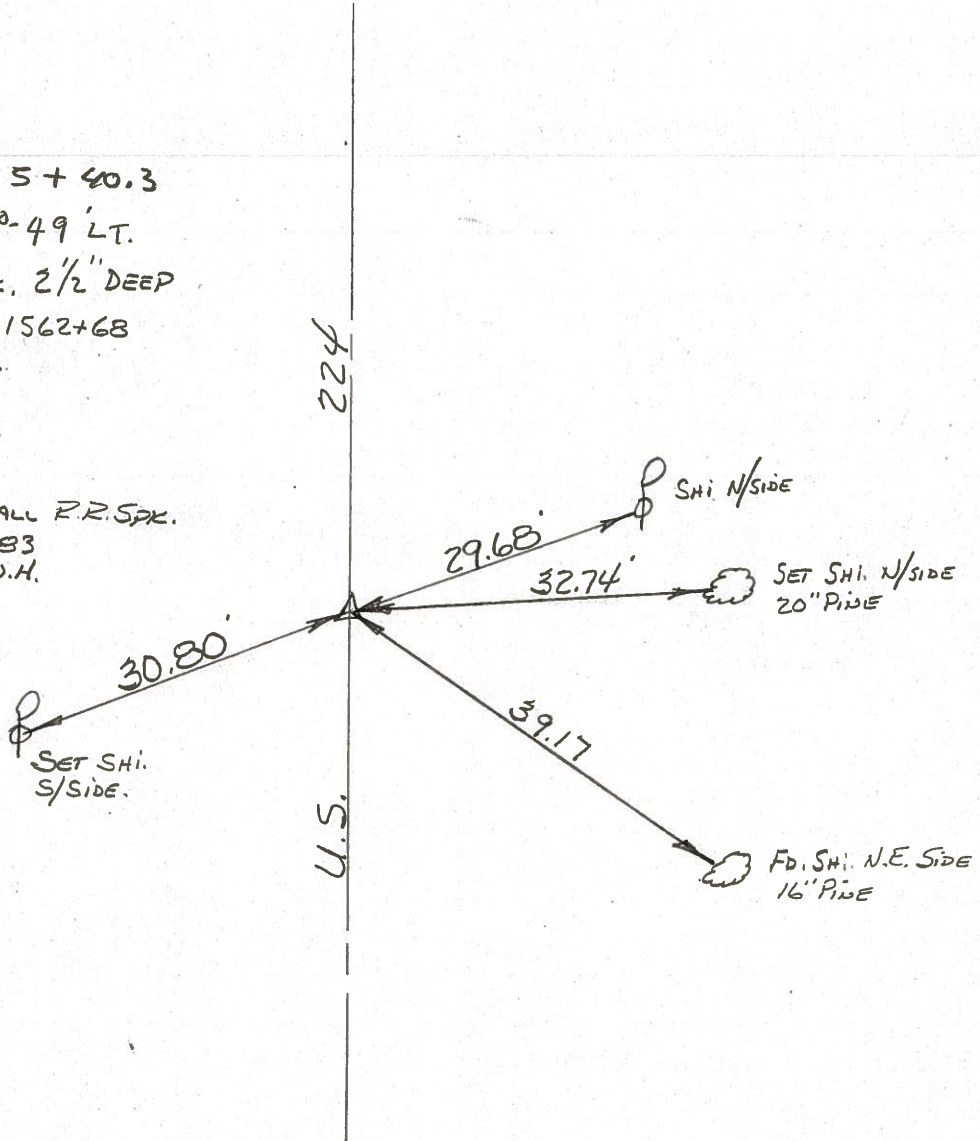 5 + 40.3
- 49' LT.
. 2 1/2" DEEP
1562+68
ALL R.R. SPK.
83
O.H.
224
U.S.
29.68'
SHI N/SIDE
32.74'
SET SHI. N/SIDE
20" PINE
30.80'
SET SHI.
S/SIDE.
39.17
FD. SHI. N.E. SIDE
16" PINE